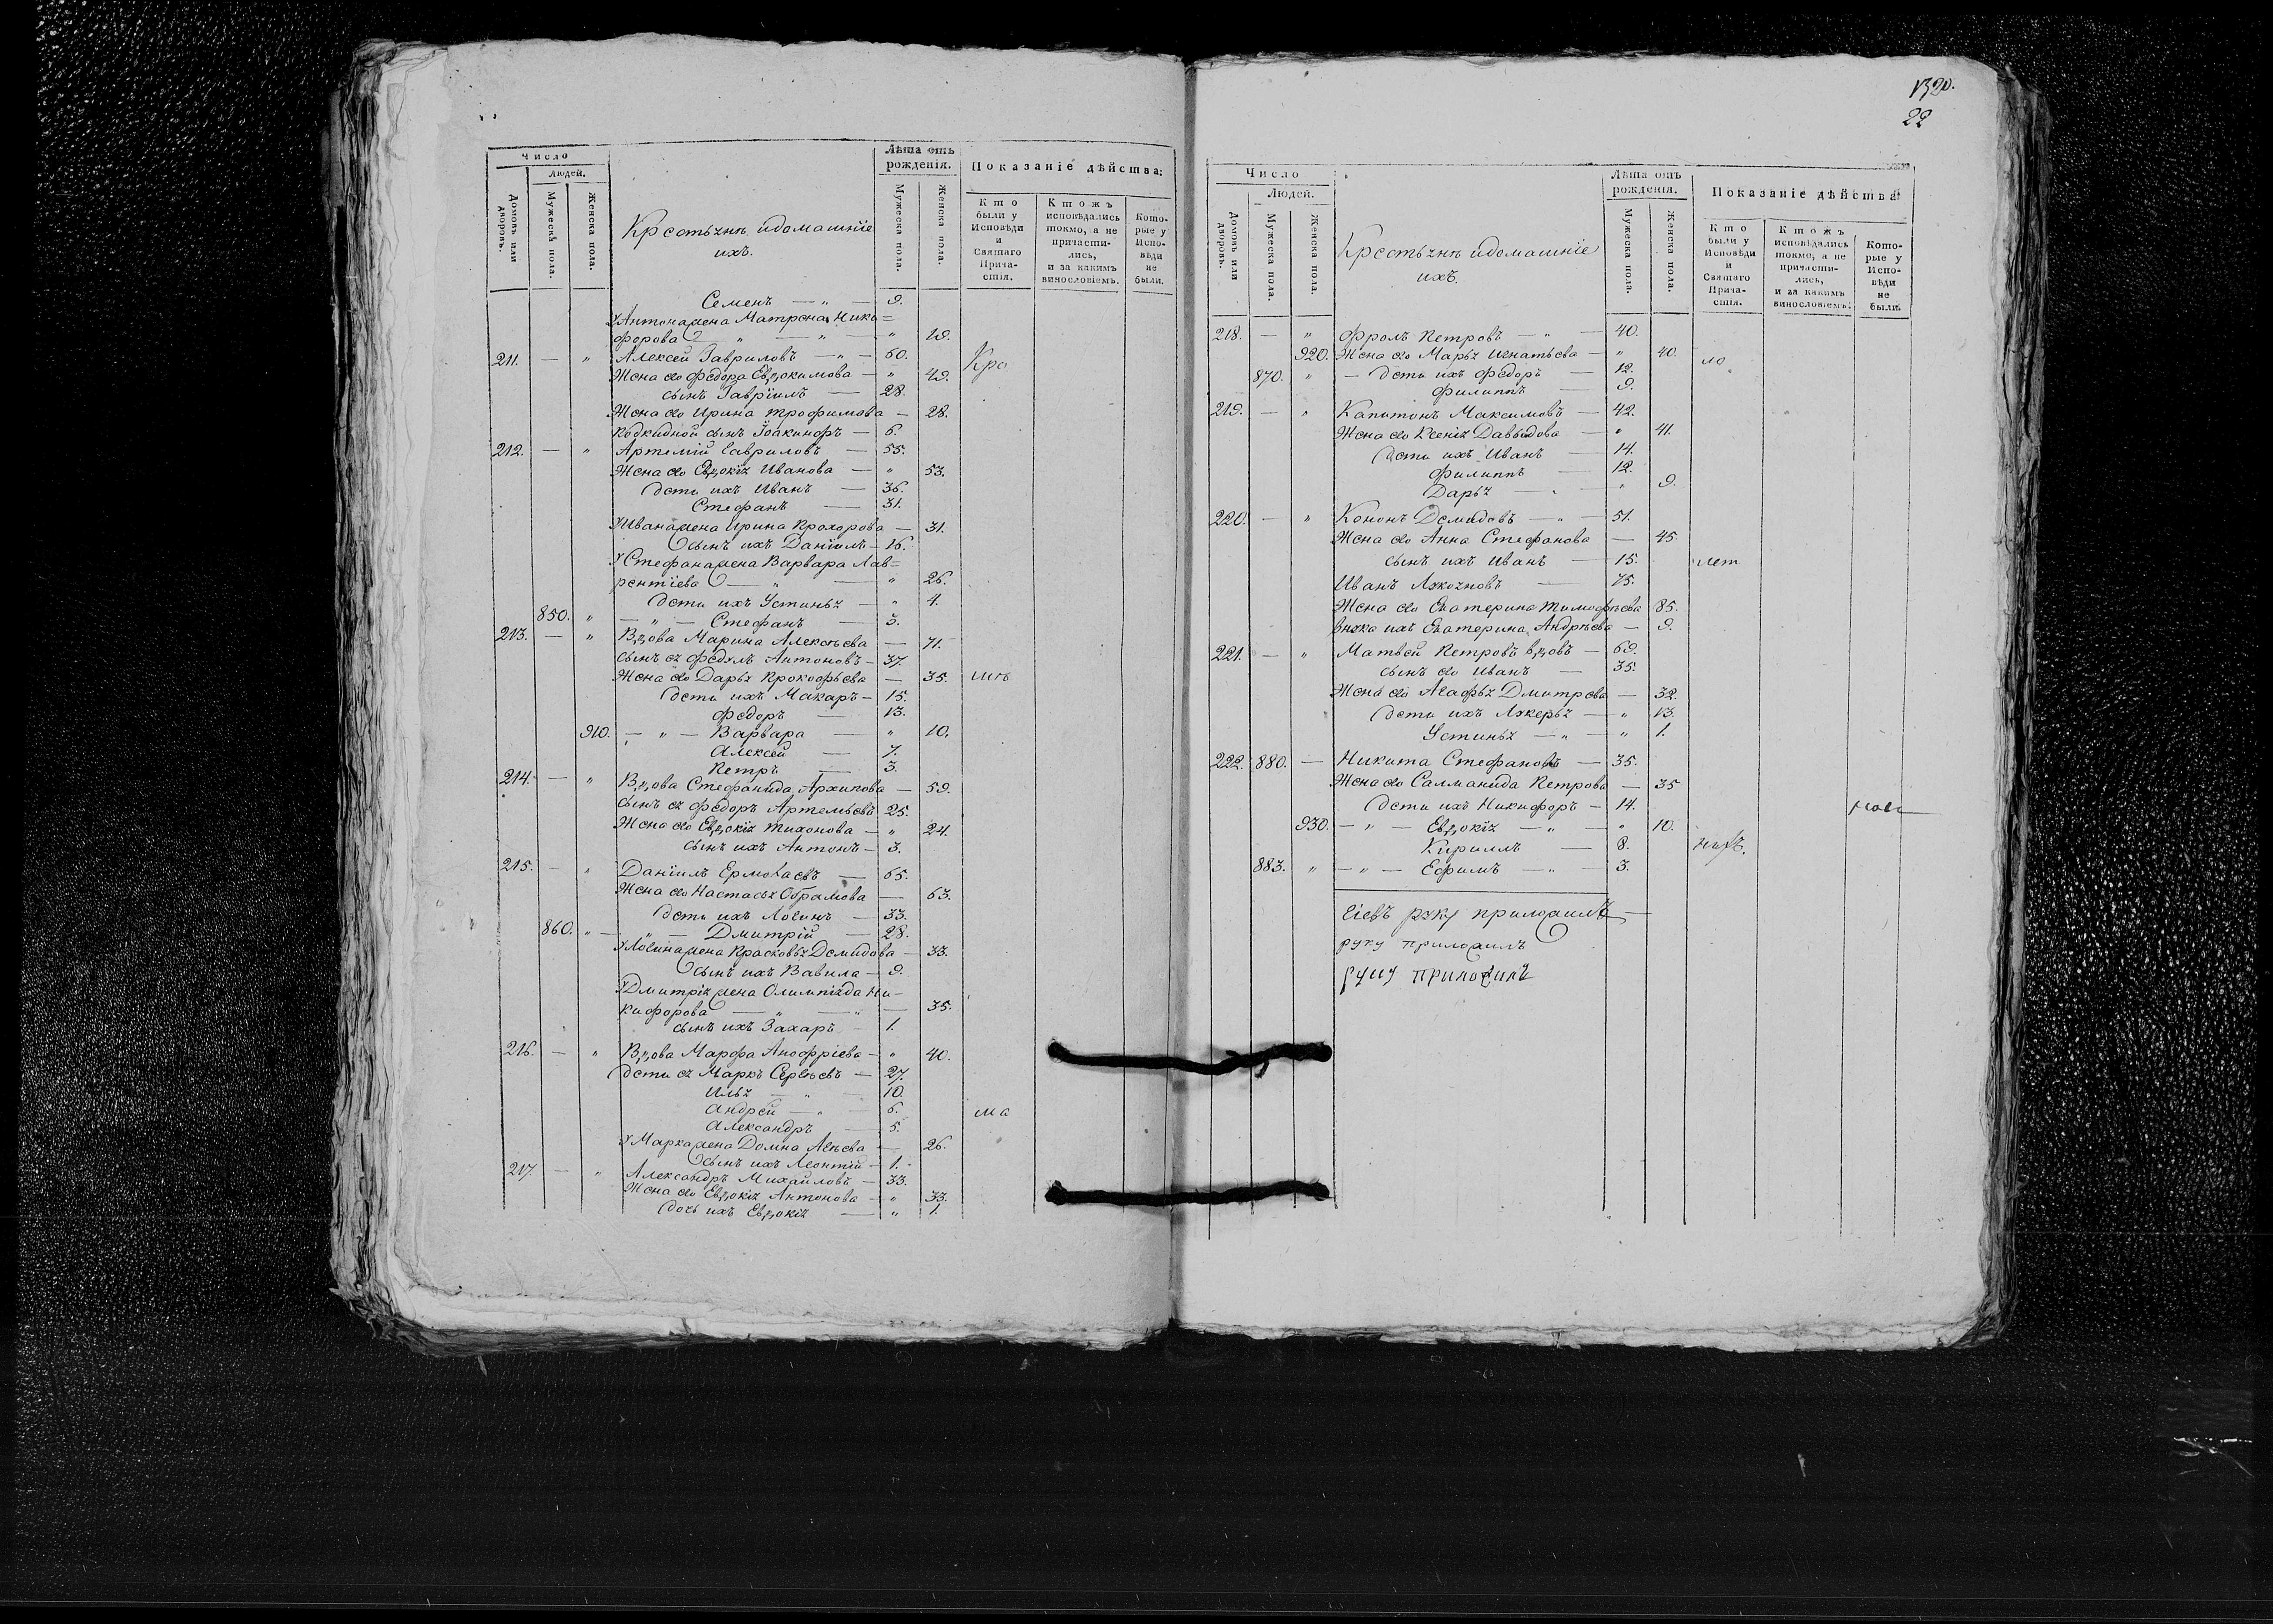 Число
Людей.
Домовъ или дворовъ.
Мужескa пола.
Женска пола.
Крестьяне идомашніе
ихъ.
Лѣта отъ
рожденія.
Мужеска пола.
Женска пола.
Показаніе дѣйства:
Кто были у Исповѣди и Святаго Прича-стія.
Ктожъ исповѣдались токмо, а не причасти-лись, и за какимъ винословіемъ.
Кото-рые у Испо-вѣди не были.
Семенъ — „ — 9.
У Антона жена Матрона Ники=
форова „ — „ — „ 19.
211. — „ Алексей Гавриловъ — „ — 60.
Жена его Федора Евдокимова — „ 49.
Кро
сынъ Гавріилъ — 28.
Жена его Ирина Трофимова — 28.
Подкидной сынъ Іоакинфъ — 6.
212. — „ Артемій Гавриловъ — 55.
Жена его Евдокія Иванова — „ 53.
дети ихъ Иванъ — 36.
Стефанъ — 31.
У Ивана жена Ирина Прохорова — 31.
сынъ ихъ Даніилъ — 16.
У Стефана жена Варвара Лав=
рентіева — „ — „ 26.
дети ихъ Устинья — „ 4.
850. „ — „ — Стефанъ — 3.
213. — „ Вдова Марина Алексѣева — 71.
сынъ ея Федулъ Антоновъ — 37.
Жена его Дарья Прокофьева — 35. шѣ
дети ихъ Макаръ — 15.
Федоръ — 13.
910. — „ — Варвара — „ 10.
Алексей — 7.
Петръ — 3.
214. — „ Вдова Стефанида Архипова — 59.
сынъ ея Федоръ Артемьевъ 25.
Жена его Евдокія Тихонова — „ 24.
сынъ ихъ Антонъ — 3.
215. — „ Даніилъ Ермолаевъ — 65.
Жена его Настасья Обрамова — 63.
дети ихъ Логинъ — 33.
860. „ — „ — Дмитрій — 28.
У Логина жена Прасковья Демидова — 33.
сынъ ихъ Вавила — 9.
У Дмитрія жена Олимпіада Ни—
кифорова — „ — „ — 35.
сынъ ихъ Захаръ — 1.
216. — „ Вдова Марфа Анофріева — „ 40.
дети ея Маркъ Сергѣевъ — 27.
Илья — „ — 10.
Андрей — „ — 6. ма
Александръ — 5.
У Марка жена Домна Агѣева — 26.
сынъ ихъ Леонтій — 1.
217. — „ Александръ Михайловъ — 33.
Жена его Евдокія Антонова — „ 33.
дочь ихъ Евдокія — „ 1.
1320.
22
Число
Людей.
Домовъ или дворовъ.
Мужеска пола.
Женска пола.
Крестьяне идомашніе
ихъ.
Лѣта отъ
рожденія.
Мужеска пола.
Женска пола.
Показаніе дѣйства:
Кто были у Исповѣди и Святаго Прича-стія.
Ктожъ исповѣдались токмо, а не причасти-лись, и за какимъ винословіемъ.
Кото-рые у Испо-вѣди не были.
218. — „ Фролъ Петровъ — „ — 40.
920. Жена его Марья Игнатьева — „ 40. ло
870. „ — дети ихъ Федоръ — 12.
Филиппъ — 9.
219. — „ Капитонъ Максимовъ — 42.
Жена его Ксенія Давыдова — „ 41.
дети ихъ Иванъ — 14.
Филиппъ — 12.
Дарья — „ — „ 9.
220. — „ Кононъ Демидовъ — „ — 51.
Жена его Анна Стефанова — 45.
сынъ ихъ Иванъ — 15.
Иванъ Лукояновъ — 75.
Жена его Екатерина Тимофѣева 85.
внука ихъ Екатерина Андрѣева — 9.
221. — „ Матвей Петровъ вдовъ — 69.
сынъ его Иванъ — 35.
Жена его Агафья Дмитрева — 32.
дети ихъ Лукерья — „ 13.
Устинья — „ — „ 1.
222. 880. — Никита Стефановъ — 35.
Жена его Салманида Петрова — 35
дети ихъ Никифоръ — 14.
930. — „ — Евдокія — „ — „ 10.
Кирилъ — 8.
883. „ — „ — Ефимъ — „ — 3.
руку приложилъ —
руку приложилъ
руку приложилъ